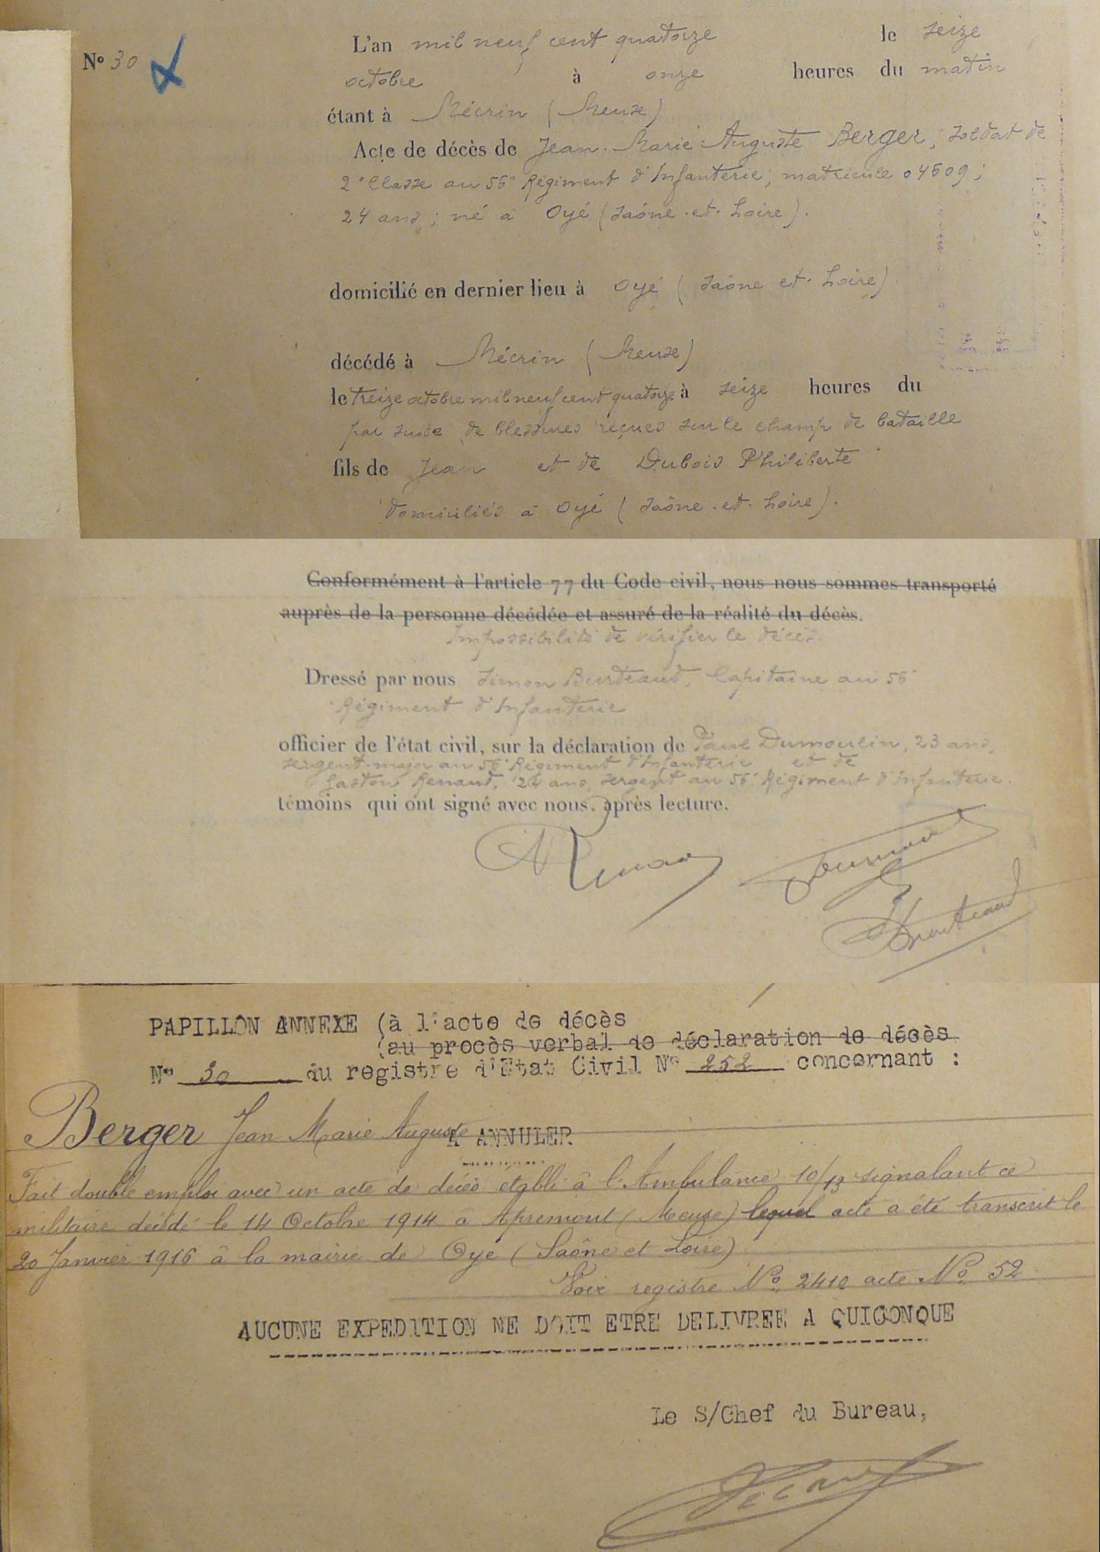 Nº 30
L'an mil neuf cent quatorze le seize
octobre à onze heures du matin
étant à Mécrin (Meuse)
Acte de décès de Jean-Marie Auguste Berger, soldat de
2e Classe au 56e Régiment d'Infanterie; matricule 04609;
24 ans; né à Oyé (Saône-et-Loire).
domicilié en dernier lieu à Oyé (Saône et Loire)
décédé à Mécrin (Meuse)
le treize octobre mil neuf cent quatorze à seize heures du
par suite de blessures reçues sur le champ de bataille
fils de Jean et de Dubois Philiberte
domiciliés à Oyé (Saône-et-Loire).
Conformément à l'article 77 du Code civil, nous nous sommes transporté
auprès de la personne décédée et assuré de la réalité du décès.
Impossibilité de vérifier le décès.
Dressé par nous Simon Burteaud, Capitaine au 56e
Régiment d'Infanterie
officier de l'état civil, sur la déclaration de Paul Dumoulin, 23 ans,
sergent-major au 56e Régiment d'Infanterie et de
Gaston Renaud, 24 ans, sergent au 56e Régiment d'Infanterie.
témoins qui ont signé avec nous, après lecture.
PAPILLON ANNEXE (à l'acte de décès
(au procès verbal de déclaration de décès
Nº 30 du registre d'Etat Civil Nº 252 concernant :
Berger Jean Marie Auguste
A ANNULER
Fait double emploi avec un acte de décès établi à l'Ambulance 10/13 signalant ce
militaire décédé le 14 Octobre 1914 à Apremont (Meuse) lequel acte a été transcrit le
20 Janvier 1916 à la mairie de Oyé (Saône et Loire)
Voir registre Nº 2410 acte Nº 52
AUCUNE EXPEDITION NE DOIT ETRE DELIVREE A QUICONQUE
Le S/Chef du Bureau,